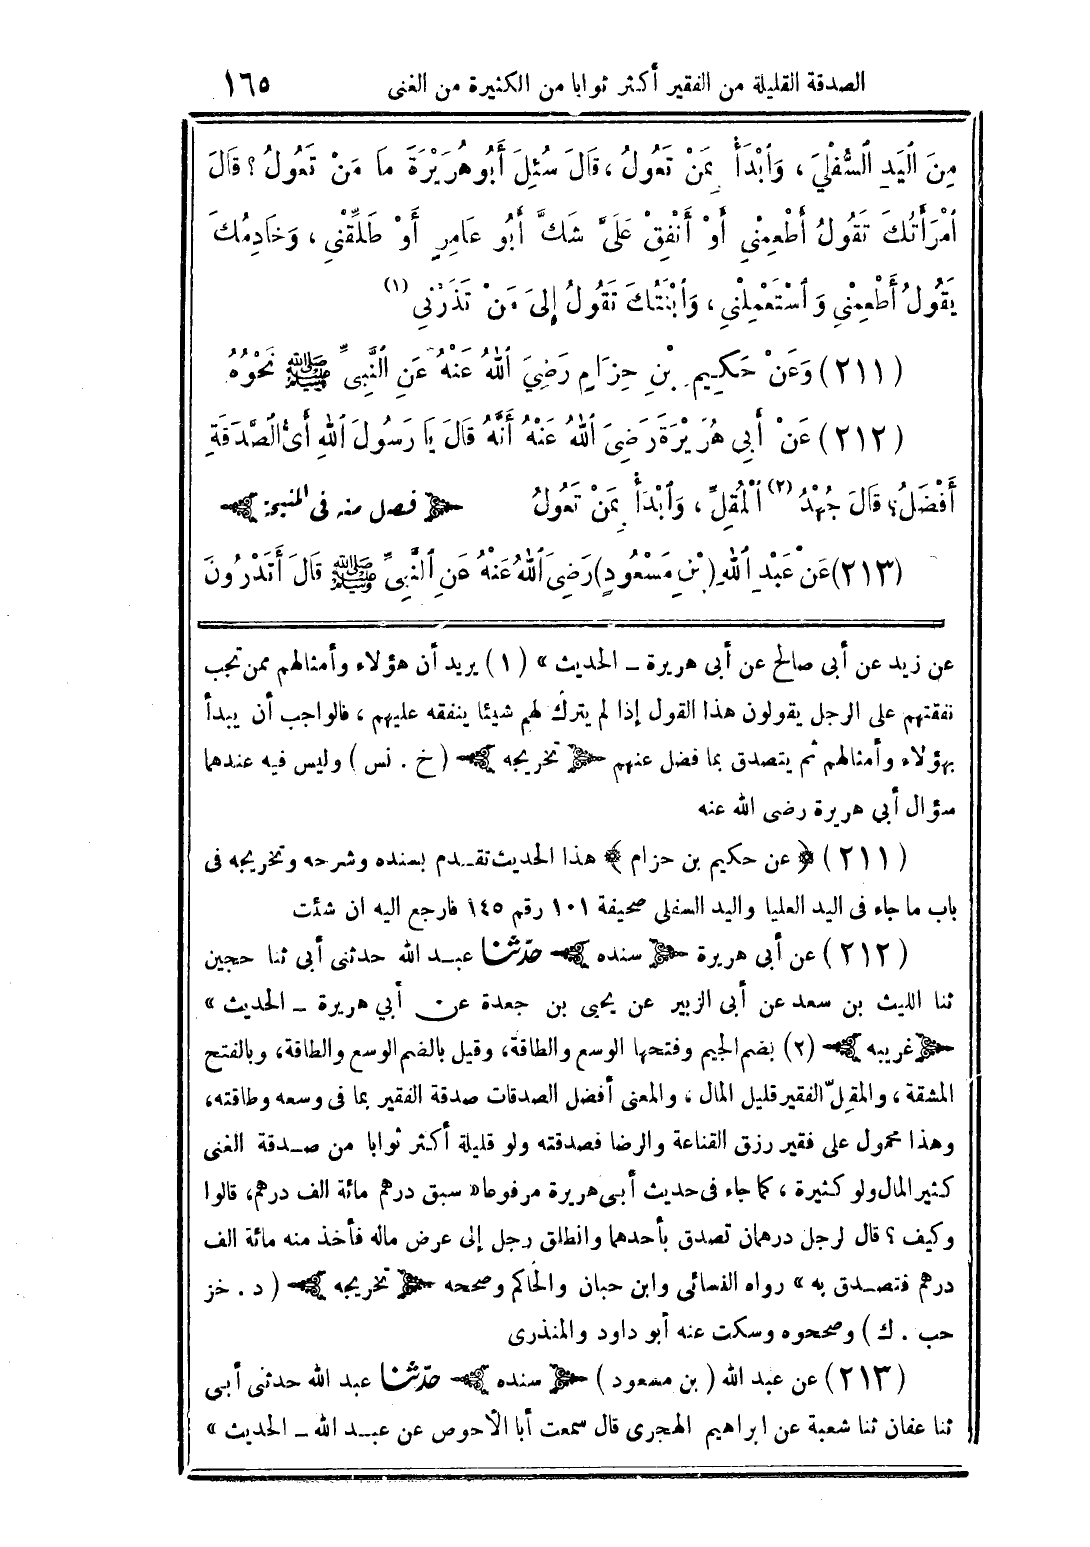 الصدقة القليلة من الفقير أكثر ثوابا من الكثيرة من الغنى ١٦٥
مِنَ الْيَدِ السُّفْلَى، وَابْدَأْ بِمَنْ تَعُولُ، قَالَ سُئِلَ أَبُو هُرَيْرَةَ مَا مَنْ تَعُولُ؟ قَالَ
امْرَأَتُكَ تَقُولُ أَطْعِمْنِي أَوْ أَنْفِقْ عَلَيَّ شَكَّ أَبُو عَامِرٍ أَوْ طَلِّقْنِي، وَخَادِمُكَ
يَقُولُ أَطْعِمْنِي وَاسْتَعْمِلْنِي، وَابْنَتُكَ تَقُولُ إِلَى مَنْ تَذَرُنِي (١)
(٢١١) وَعَنْ حَكِيمِ بْنِ حِزَامٍ رَضِيَ اللهُ عَنْهُ عَنِ النَّبِيِّ ﷺ نَحْوُهُ
(٢١٢) عَنْ أَبِي هُرَيْرَةَ رَضِيَ اللهُ عَنْهُ أَنَّهُ قَالَ يَا رَسُولَ اللهِ أَيُّ الصَّدَقَةِ
أَفْضَلُ؟ قَالَ جُهْدُ (٢) الْمُقِلِّ، وَابْدَأْ بِمَنْ تَعُولُ ﴿ فصل منه فى المنيحة ﴾
(٢١٣) عَنْ عَبْدِ اللهِ (بْنِ مَسْعُودٍ) رَضِيَ اللهُ عَنْهُ عَنِ النَّبِيِّ ﷺ قَالَ أَتَدْرُونَ
عن زيد عن أبى صالح عن أبى هريرة ــ الحديث » (١) يريد أن هؤلاء وأمثالهم ممن تجب
نفقتهم على الرجل يقولون هذا القول إذا لم يترك لهم شيئا ينفقه عليهم، فالواجب أن يبدأ
بهؤلاء وأمثالهم ثم يتصدق بما فضل عنهم ﴿ تخريجه ﴾ (خ . نس) وليس فيه عندهما
سؤال أبي هريرة رضى الله عنه
(٢١١) ﴿ عن حكيم بن حزام ﴾ هذا الحديث تقدم بسنده وشرحه وتخريجه فى
باب ما جاء فى اليد العليا واليد السفلى صحيفة ١٠١ رقم ١٤٥ فارجع اليه ان شئت
(٢١٢) عن أبى هريرة ﴿ سنده ﴾ حدّثنا عبد الله حدثنى أبى ثنا حجين
ثنا الليث بن سعد عن أبى الزبير عن يحيى بن جعدة عن أبي هريرة ــ الحديث »
﴿ غريبه ﴾ (٢) بضم الجيم وفتحها الوسع والطاقة، وقيل بالضم الوسع والطاقة، وبالفتح
المشقة، والمقلّ الفقير قليل المال، والمعنى أفضل الصدقات صدقة الفقير بما فى وسعه وطاقته،
وهذا محمول على فقير رزق القناعة والرضا فصدقته ولو قليلة أكثر ثوابا من صدقة الغنى
كثير المال ولو كثيرة، كما جاء فى حديث أبى هريرة مرفوعا « سبق درهم مائة الف درهم، قالوا
وكيف؟ قال لرجل درهمان تصدق بأحدهما وانطلق رجل إلى عرض ماله فأخذ منه مائة الف
درهم فتصدق به » رواه النسائى وابن حبان والحاكم وصححه ﴿ تخريجه ﴾ (د . خز
حب . ك) وصححوه وسكت عنه أبو داود والمنذرى
(٢١٣) عن عبد الله (بن مسعود) ﴿ سنده ﴾ حدّثنا عبد الله حدثنى أبى
ثنا عفان ثنا شعبة عن ابراهيم الهجرى قال سمعت أبا الأحوص عن عبد الله ــ الحديث »